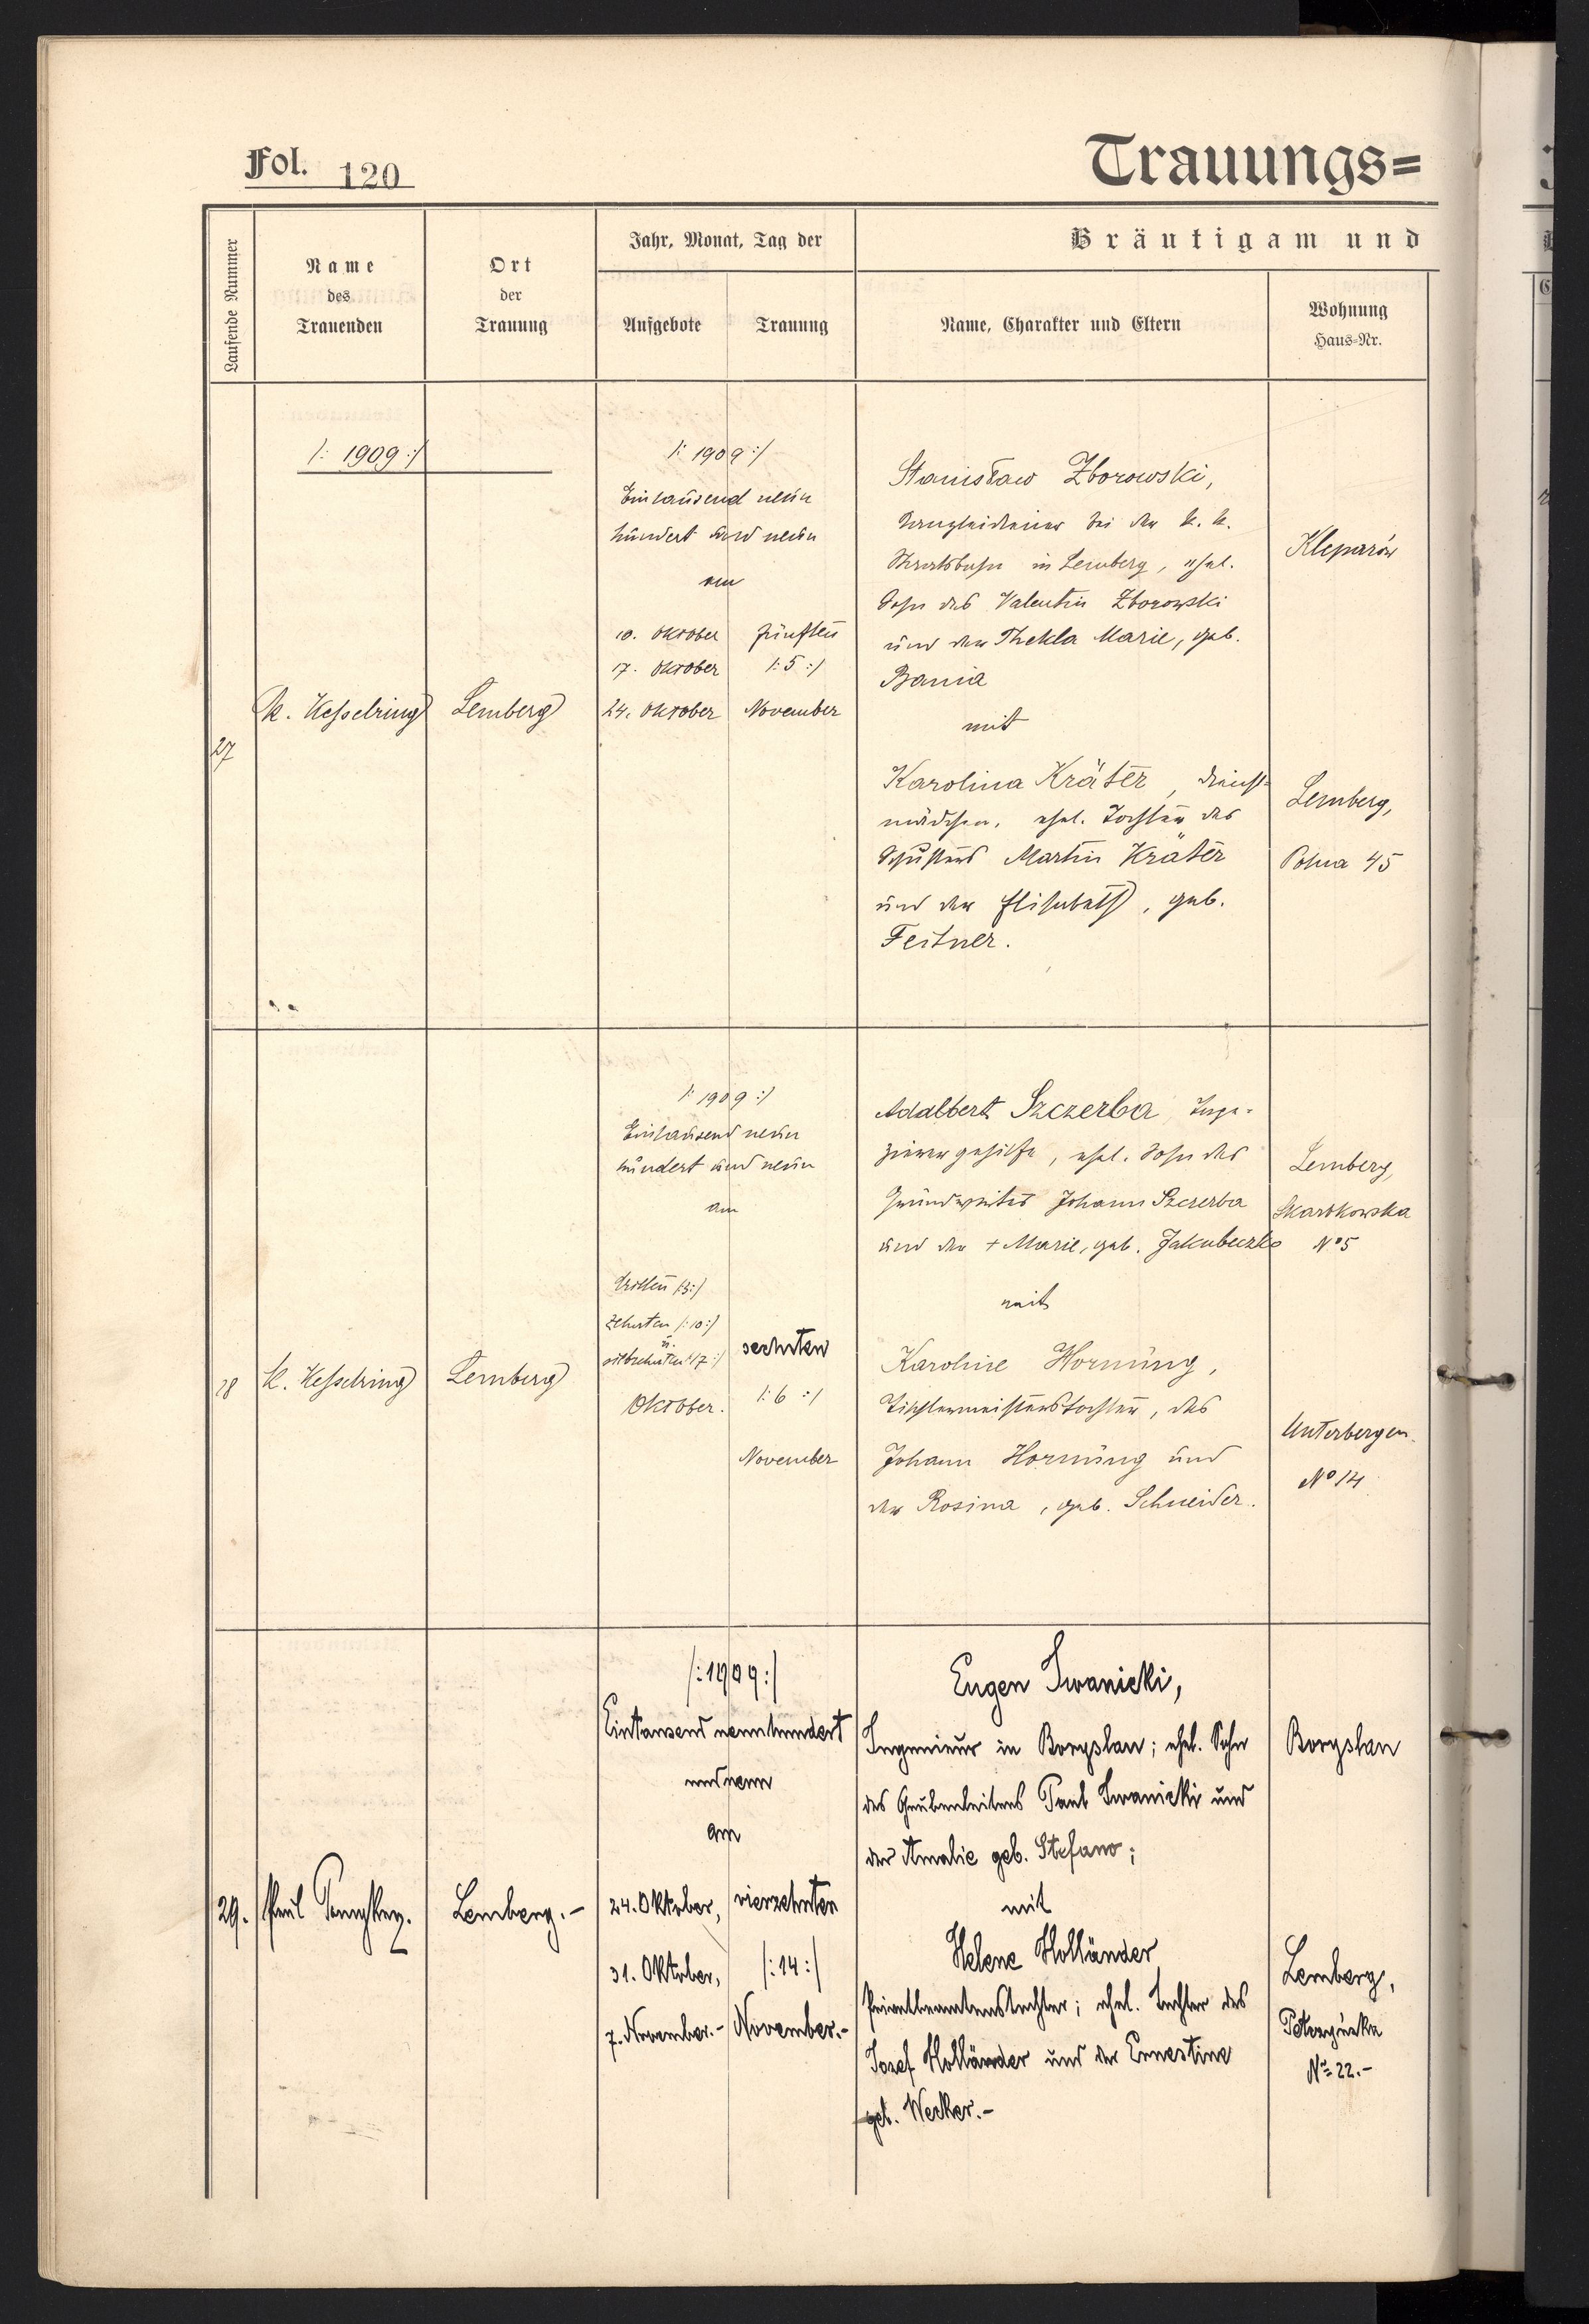 Fol. 120
Trauungs=
Laufende Nummer
Name
des
Trauenden
Ort
der
Trauung
Jahr, Monat, Tag der
Aufgebote
Trauung
Bräutigam und
Name, Charakter und Eltern
Wohnung
Haus=Nr.
/: 1909 :/
27
K. Kesselring
Lemberg
/: 1909 :/
Eintausend neun
hundert und neun
am
10. Oktober
17. Oktober
24. Oktober
fünften
/: 5 :/
November
Stanisław Zborowski,
Kanzleidiener bei der k. k.
Staatsbahn in Lemberg, ehel.
Sohn des Valentin Zborowski
und der Thekla Marie, geb.
Bania
mit
Karolina Kräter, Dienst=
mädchen, ehel. Tochter des
Schusters Martin Kräter
und der Elisabeth, geb.
Feitner.
Kleparów
Lemberg,
45
28
K. Kesselring
Lemberg
/: 1909 :/
Eintausend neun
hundert und neun
am
dritten /:3:/
zehnten /:10:/
u.
siebzehnten /17:/
Oktober.
sechsten
/: 6 :/
November
Adalbert Szczerba, Tape=
zierergehilfe, ehel. Sohn des
Grundwirtes Johann Szczerba
und der + Marie, geb. Jakubeczko
mit
Karoline Hornung,
Tischlermeisterstochter, des
Johann Hornung und
der Rosina, geb. Schneider.
Lemberg,
Skarbkowska
No 5
Unterbergen
No 14
29.
Paul
Lemberg.-
/: 1909 :/
Eintausend neunhundert
und neun
am
24. Oktober,
31. Oktober,
7. November.-
vierzehnten
/: 14 :/
November.-
Eugen Iwanicki,
Ingenieur in Boryslau; ehel. Sohn
des Grubenleiters Paul Iwanicki und
der Amalie geb. Stefano;
mit
Helene Holländer
Privatbeamtenstochter; ehel. Tochter des
Josef Holländer und der Ernestine
geb. Wecker.-
Boryslau
Lemberg,
No 22.-